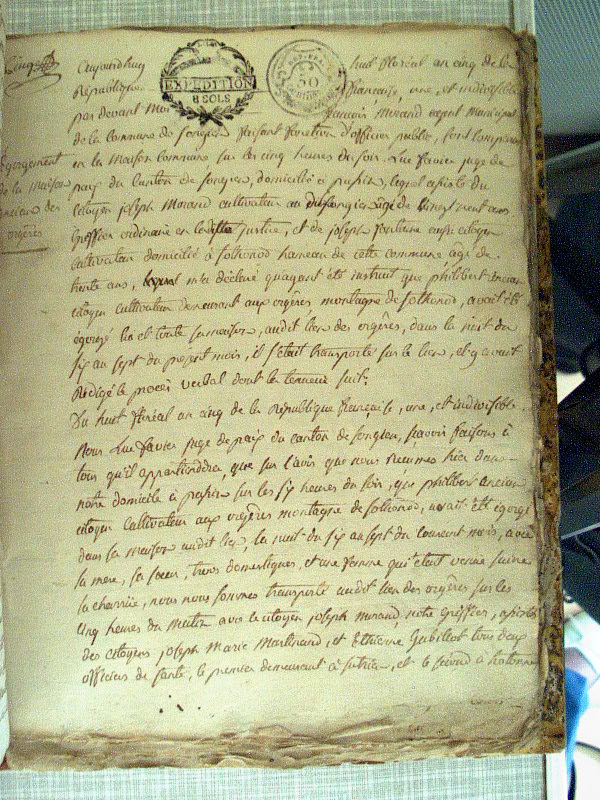 Aujourdhuy huit floréal an cinq de la
République française, une, et indivisible
par devant moi françois Morand agent municipal
de la commune de songieu faisant fonction d'officier public, sont comparus
en la Maison commune sur les cinq heures du soir, Luc favier juge de
paix du Canton de songieu, domicilié à assisté du
citoyen joseph Morand cultivateur au dit songieu agé de vingt neuf ans
Greffier ordinaire en la ditte justice, et de joseph aussi citoyen
cultivateur domicilié à sothonod hameau de cette commune agé de
trente ans, lequel m'a déclaré qu'ayant été instruit que philibert ancian
citoyen cultivateur demeurant aux orgères montagne de sothonod, avait été
égorgé lui et toute sa maison, audit lieu des orgères, dans la nuit du
six au sept du present mois, il s'était transporté sur le lieu, et y avait
Rédigé le procès verbal dont la teneur suit;
Du huit floréal an cinq de la République française, une, et indivisible.
Nous Luc favier juge de paix du canton de songieu, savoir faisons à
tous qu'il appartiendra, que sur l'avis que nous reçumes hier dans
notre domicile à sur les six heures du soir, que philibert ancian
citoyen cultivateur aux orgères montagne de sothonod, avait été égorgé
dans sa maison audit lieu, la nuit du six au sept du courant mois, avec
sa mère, sa soeur, trois domestiques, et une femme qui était venue suivre
la charrüe, nous nous sommes transporté audit lieu des orgères sur les
cinq heures du matin avec le citoyen joseph morand notre Greffier, assistés
des citoyens joseph Marie Martinand, et Ethienne Gubillat tous deux
officiers de santé, le premier demeurant à sutrieu, et le second à hotonne
Egorgement
de la maison
ancian des
orgères
EXPÉDITION
8 SOLS
REP. FRA.
50